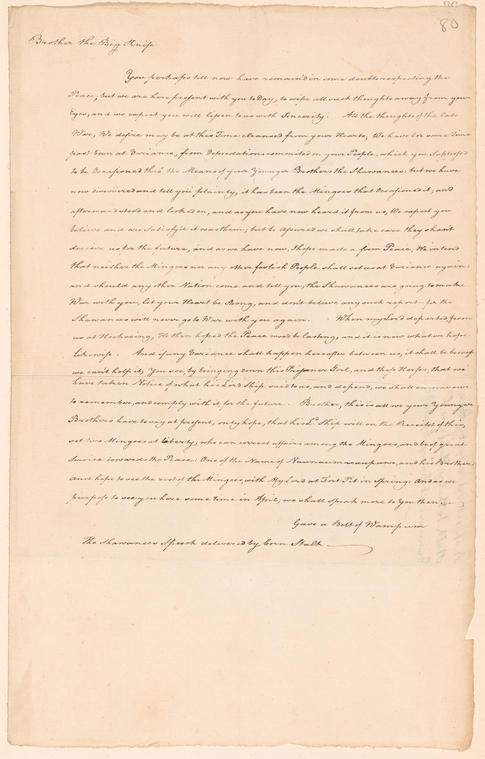 80
Brother the Big Knife
You perhaps till now have remaind in some doubts respecting the
Peace, but we are here present with you to Day, to wipe all such thoughts away from your
Eyes, and we expect you will lissen to us with Sincerity. All the thoughts of the late
War, We desire may be at this Time cleansed from your Hearts, We have for some Time
past been at Variance, from Depredations commited on your People, which you Supposed
to be Occasioned thro' the Means of your Younger Brothers the Shawanese: but we have
now discovered and tell you plainly, it has been the Mingoes that Occasioned it, and
afterwards stood and looked on, and as you have now heard it from us, We expect you
believe and are Satisfyed it was them; but be Assured we shall take care they shan't
deceive us for the future, and as we have now, I hope made a firm Peace, We intend
that neither the Mingoes nor any other foolish People shall set us at Variance again:
and should any other Nation come and tell you, the Shawanese are going to make
War with you, let your Heart be Strong, and don't believe any such report - for the
Shawanese will never go to War with you again. When my Lord departed from
us at Hockocing, He then hoped the Peace woud be lasting, and it is now what we hope
Likewise. And if any Variance shall happen hereafter between us, it shall be because
we can't help it, You see, by bringing down this Prisoner Girl, and these Horses, that we
have taken Notice of what his Lord Ship said to us, and depend, we shall endeavour
to remember, and comply with it, for the future. Brother, this is all we your Younger
Brothers have to say at present, only hope, that his Lp. Ship will on the Receipt of this,
set two Mingoes at Liberty, who can correct affairs among the Mingoes, and be of great
Service towards the Peace: One of the Name of and his Brother
And hope to see the rest of the Mingoes, with My Lord at Fort Pit in Spring. And as we
purpose to see you here some time in April, we shall speak more to You then
Gave a Belt of Wampum
The Shawanese Speech delivered by Corn Stalk